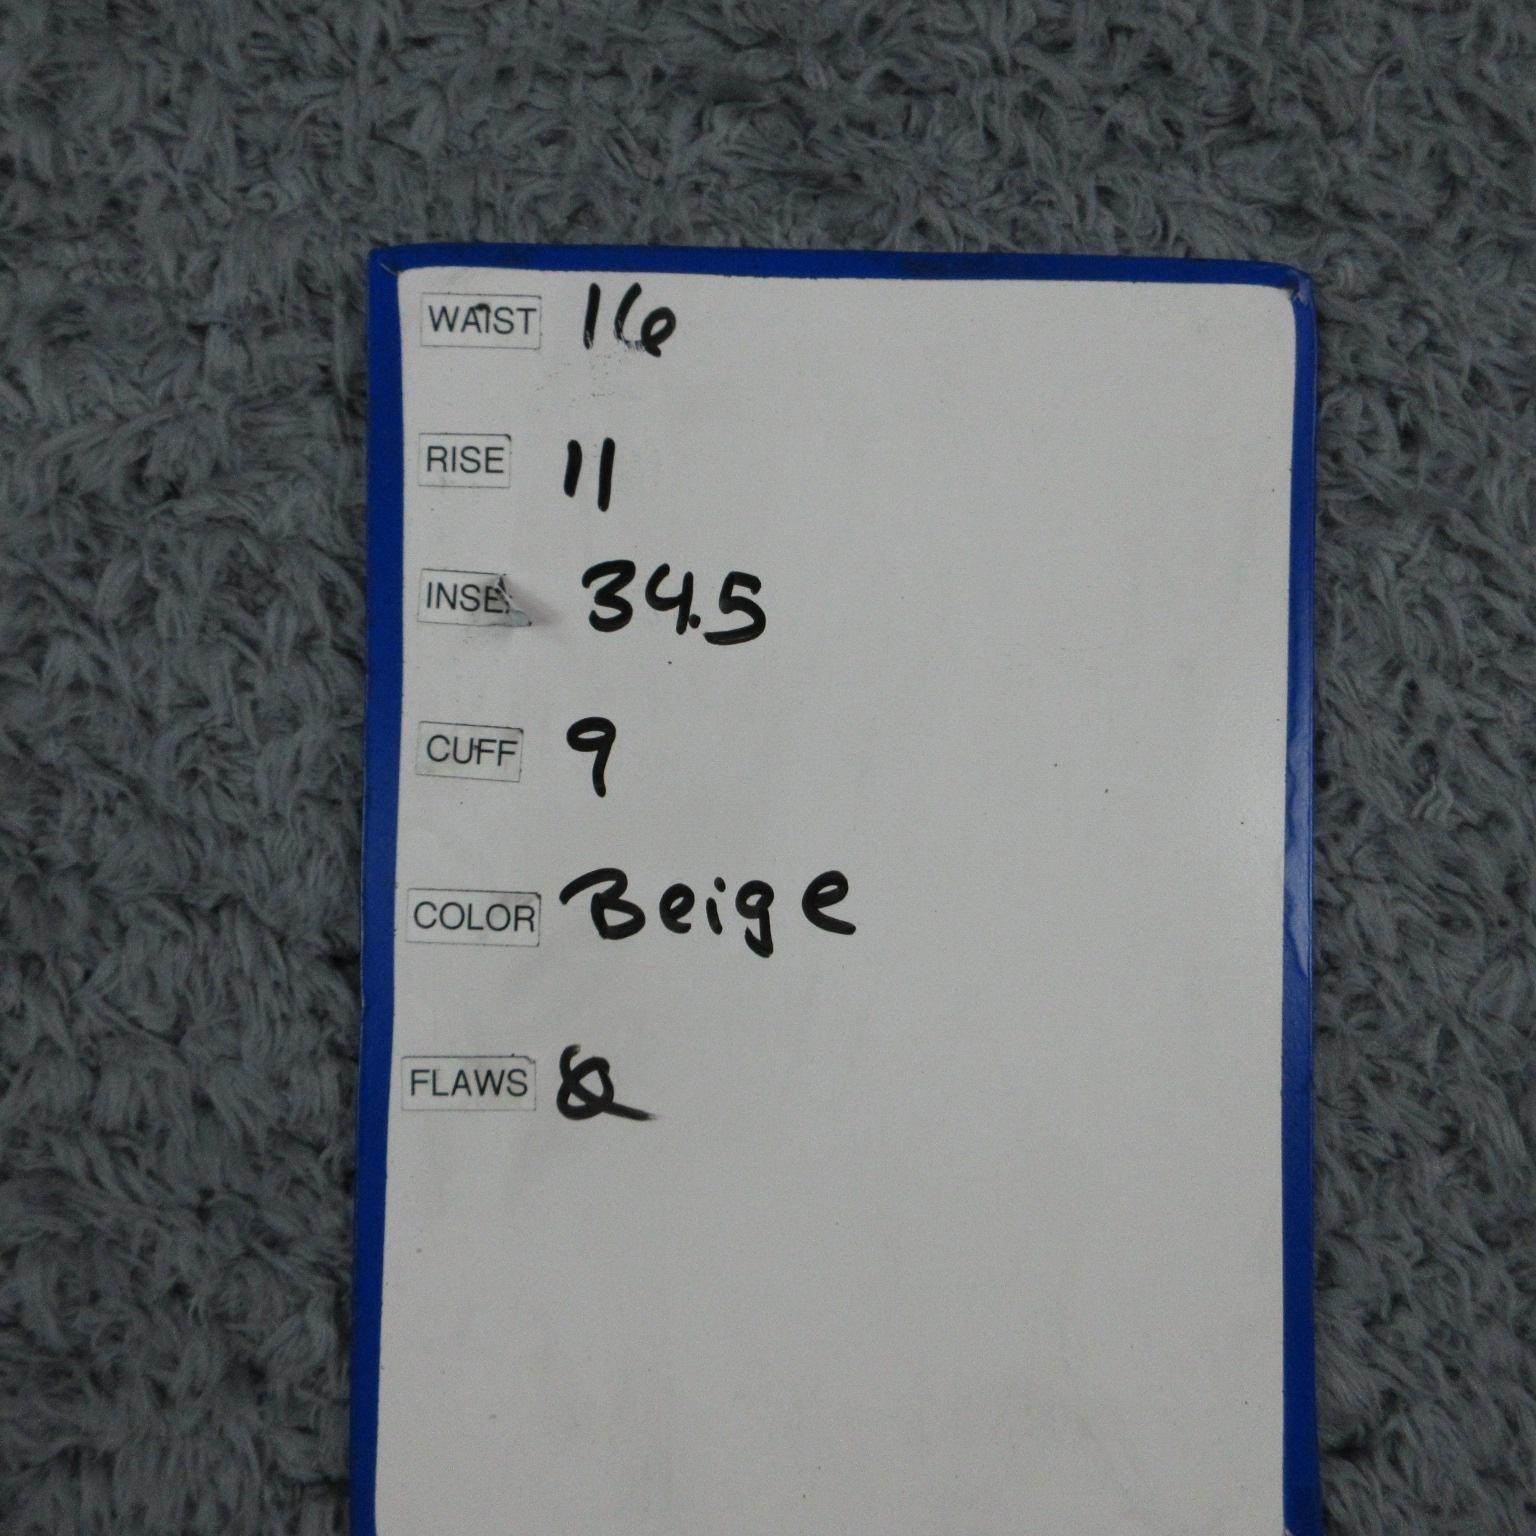 WAIST 16
RISE 11
INSE 34.5
CUFF 9
COLOR Beige
FLAWS